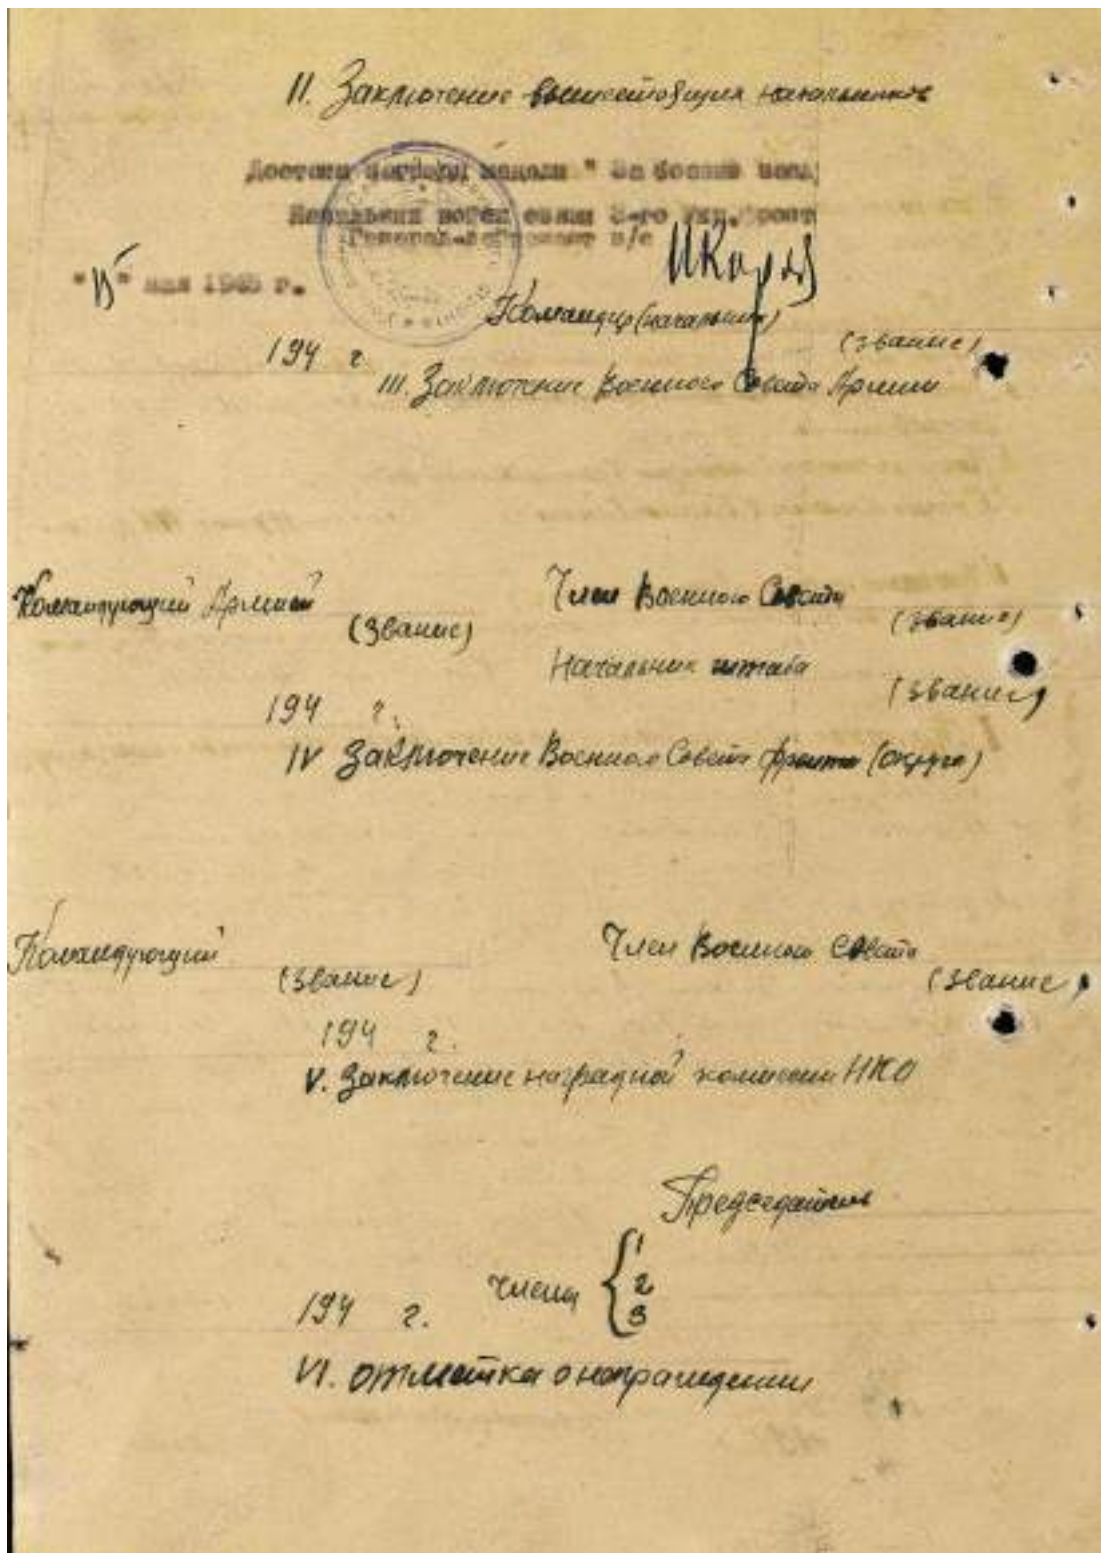 II. Заключение вышестоящих начальников
Достоин награды медали " За боевые
Начальник войск связи 3-го Укр. фронт
Генерал-лейтенант в/с
" " мая 1945 г.
Командир (начальник)
(звание)
194 г.
III. Заключение Военного Совета Армии
Командующий Армией
Член Военного Совета
(звание)
(звание)
Начальник штаба
(звание)
194 г.
IV Заключение Военного Совета фронта (округа)
Командующий
Член Военного Совета
(звание)
(звание)
194 г.
V. Заключение наградной комиссии НКО
Председатель
члены { 1
2
3
194 г.
VI. отметка о награждении